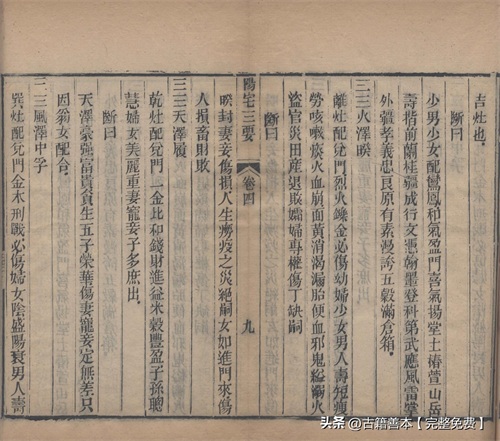 吉灶也
斷曰
少男少女配鸞鳳和氣盈門喜氣揚堂上椿萱山岳
壽指前蘭桂滿成行文憑翰墨登科第武應風雷
外鎮孝義忠良原有素漫誇五穀滿倉箱
三三火澤睽
離灶配兌門烈火煉金必傷幼婦少女男人壽短
勞咳嗽痰火血崩面黃消渴漏胎便血邪鬼縊溺火
盜官災田產退敗孀婦專權傷丁缺嗣
斷曰
睽卦妻妾傷損人生癆疫之災絕嗣女如進門來傷
人損畜財敗
三三天澤履
乾灶配兌門二金比和錢財進益米穀豐盈子孫聰
慧婦女美麗重妻寵妾子多庶出
斷曰
天澤豪强富貴貧生五子榮華傷妻寵妾定無差只
因翁女配合
三三風澤中孚
巽灶配兌門金木刑戰必傷婦女陰盛陽衰男人壽
陽宅三要
卷四
九
頭条 @古籍善本【完整免费】